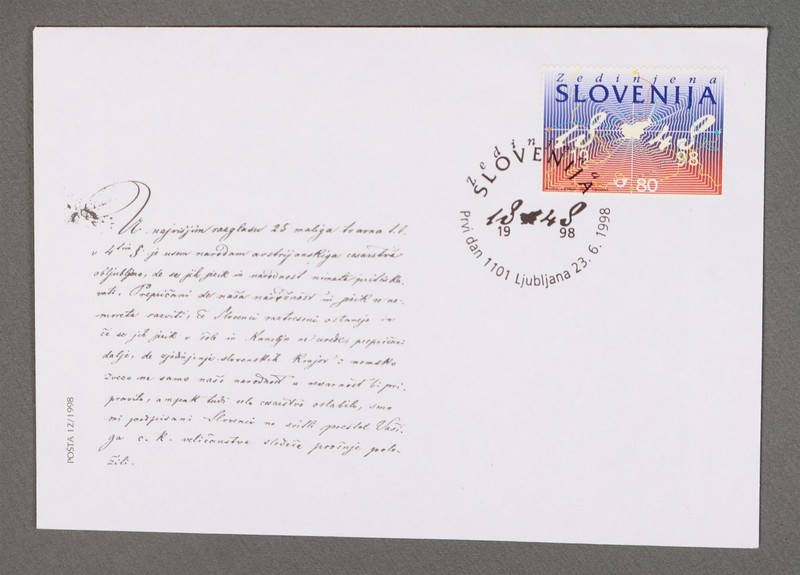 Zedinjena
SLOVENIJA
18 48
19 98
80
Zedinjena
SLOVENIJA
18 48
19 98
Prvi dan 1101 Ljubljana 23. 6. 1998
U najvišjim razglasu 25 maliga travna t. l.
je vsem narodam avstrijanskiga cesarstva
obljubljeno, de se jih jezik in narodnost nimata pritiska
vati. Prepričani de naša narodnost in jezik se ne
moreta razviti, če Slovenci raztreseni ostanejo in
če se jih jezik v šoli in Kanclji ne uvede, prepričani
dalje, de zjedinjenje slovenskih Krajov z nemško
zvezo ne samo naše narodnost v nevarnost bi pri
pravila, ampak tudi celo cesarstvo oslabila, smo
mi podpisani Slovenci na svitli prestol Vaši
ga c. k. veličanstva sledeče prošnje polo
žili.
POŠTA 12/1998